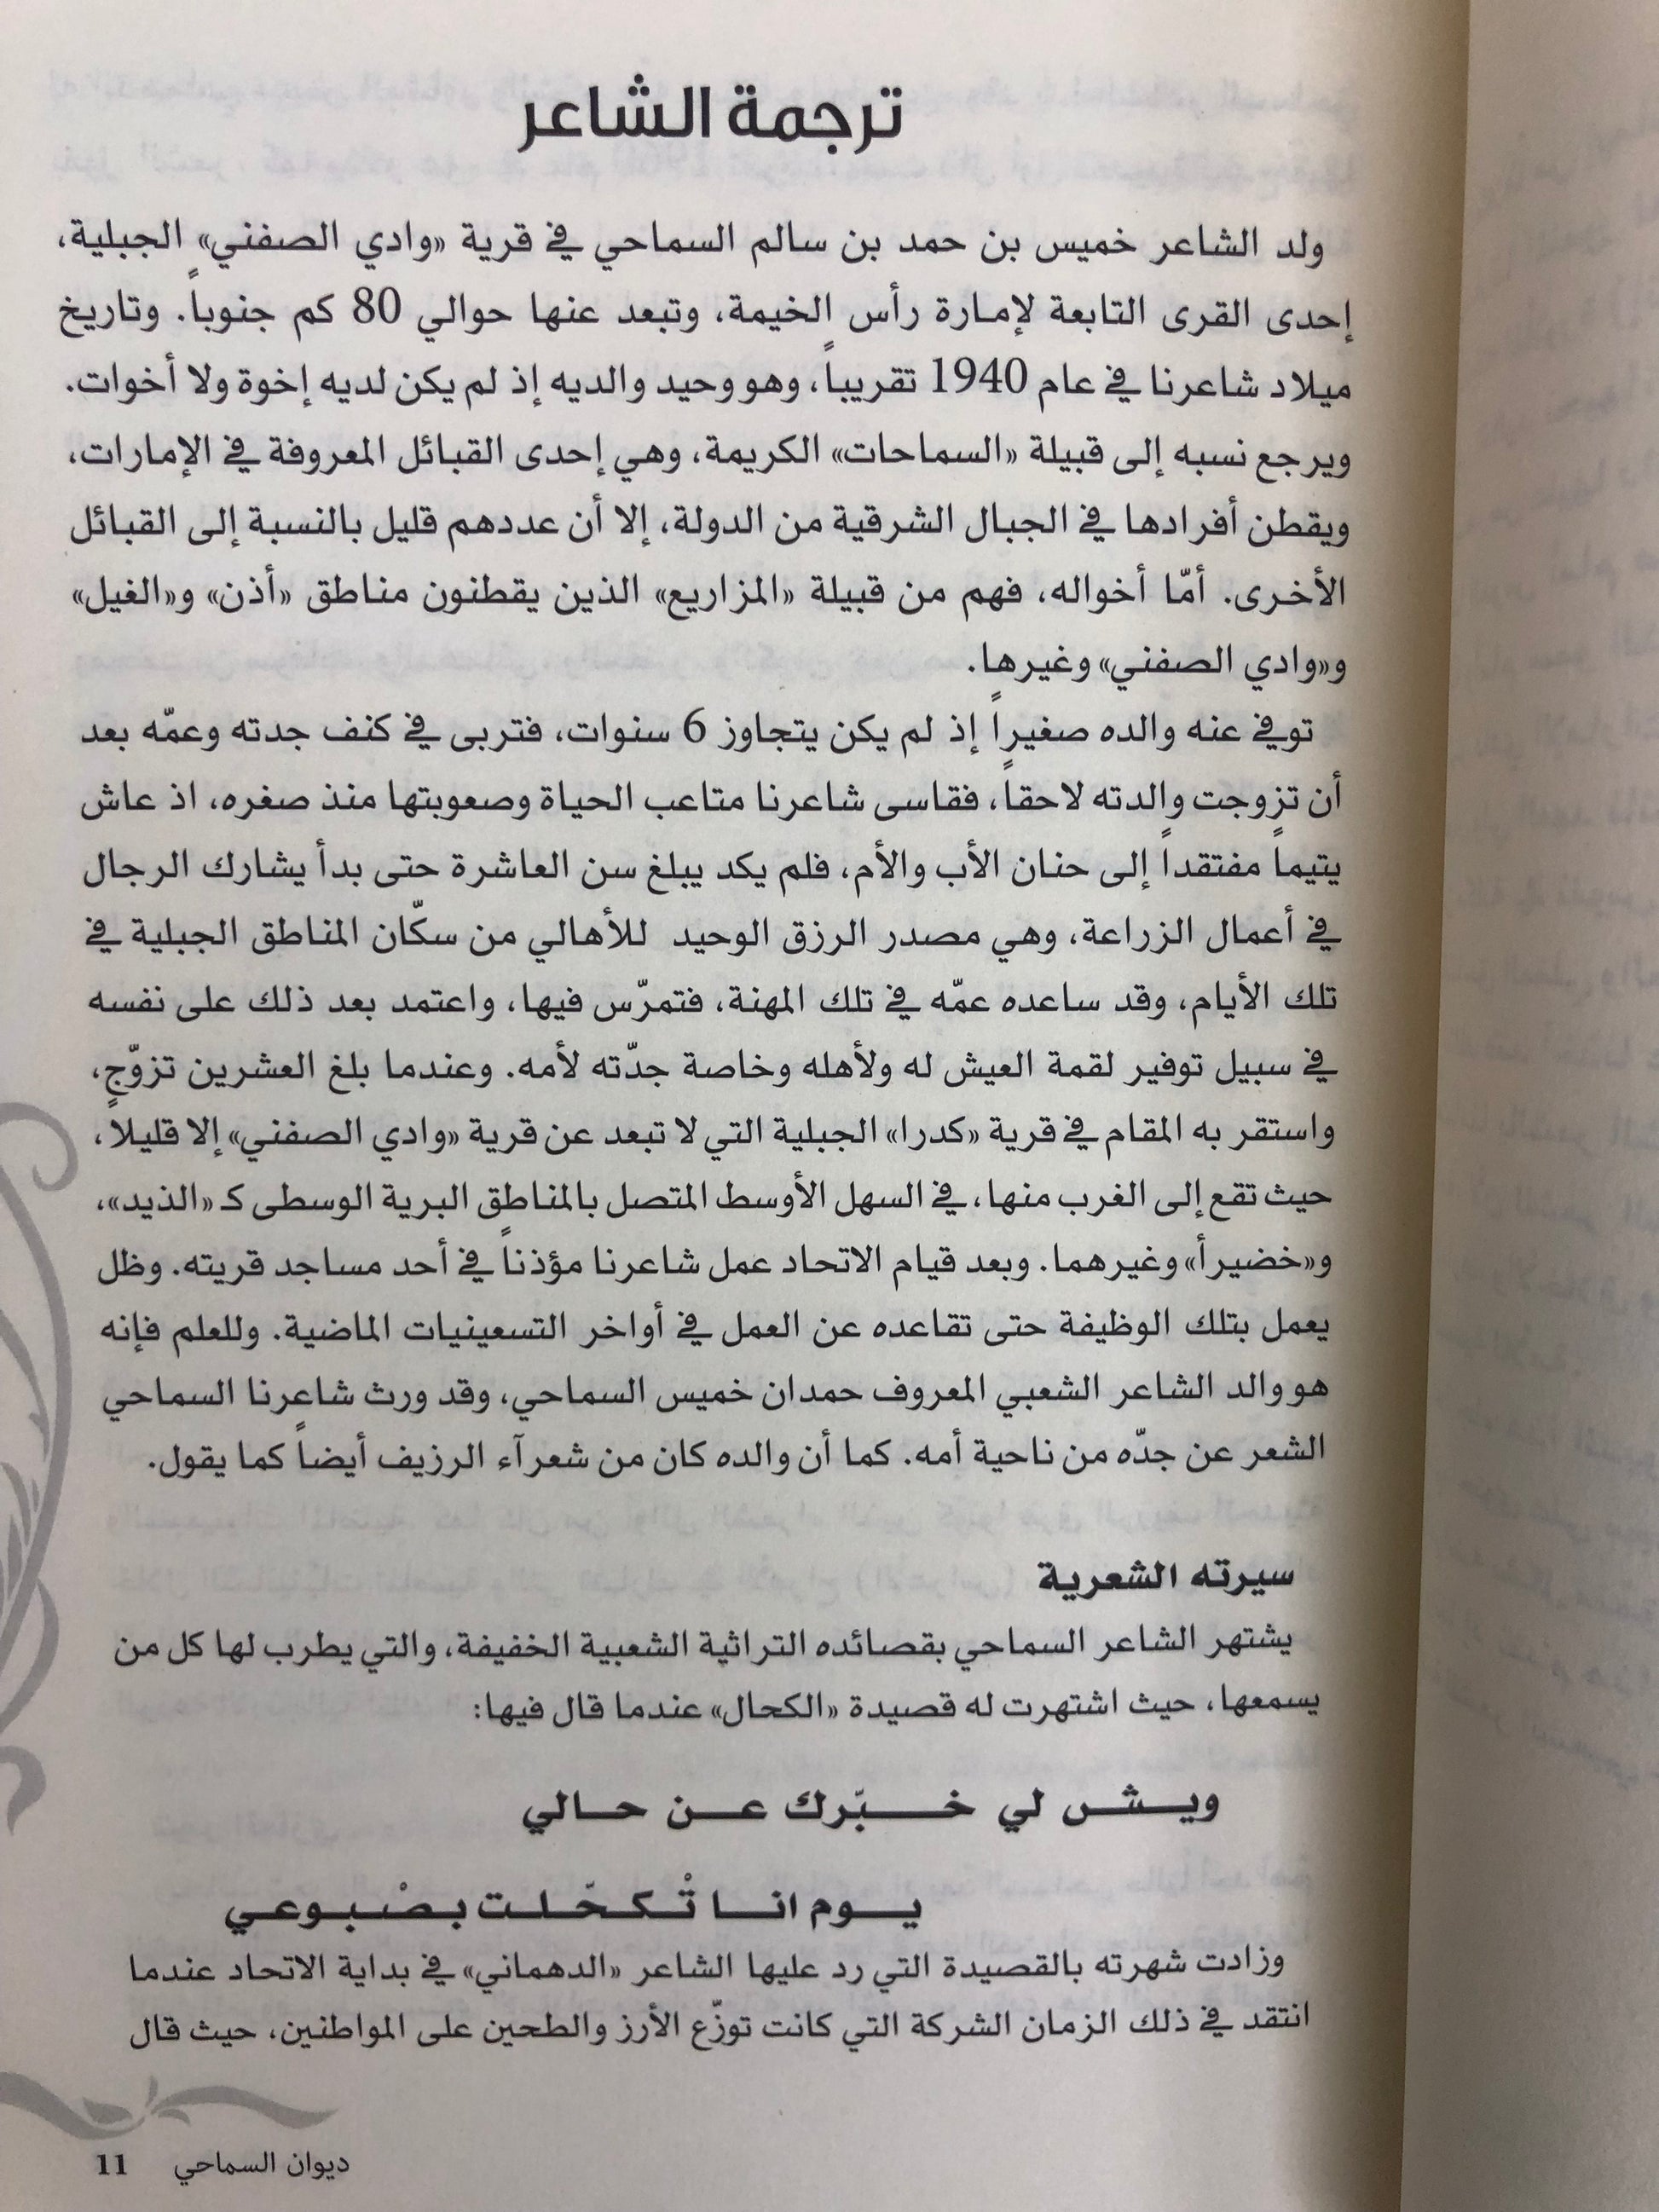 ترجمة الشاعر
ولد الشاعر خميس بن حمد بن سالم السماحي في قرية «وادي الصفني» الجبلية،
إحدى القرى التابعة لإمارة رأس الخيمة، وتبعد عنها حوالي 80 كم جنوباً. وتاريخ
ميلاد شاعرنا في عام 1940 تقريباً، وهو وحيد والديه إذ لم يكن لديه إخوة ولا أخوات.
ويرجع نسبه إلى قبيلة «السماحات» الكريمة، وهي إحدى القبائل المعروفة في الإمارات،
ويقطن أفرادها في الجبال الشرقية من الدولة، إلا أن عددهم قليل بالنسبة إلى القبائل
الأخرى. أمّا أخواله، فهم من قبيلة «المزاريع» الذين يقطنون مناطق «أذن» و«الغيل»
و«وادي الصفني» وغيرها.
توفي عنه والده صغيراً إذ لم يكن يتجاوز 6 سنوات، فتربى في كنف جدته وعمّه بعد
أن تزوجت والدته لاحقاً، فقاسى شاعرنا متاعب الحياة وصعوبتها منذ صغره، اذ عاش
يتيماً مفتقداً إلى حنان الأب والأم، فلم يكد يبلغ سن العاشرة حتى بدأ يشارك الرجال
في أعمال الزراعة، وهي مصدر الرزق الوحيد للأهالي من سكّان المناطق الجبلية في
تلك الأيام، وقد ساعده عمّه في تلك المهنة، فتمرّس فيها، واعتمد بعد ذلك على نفسه
في سبيل توفير لقمة العيش له ولأهله وخاصة جدّته لأمه. وعندما بلغ العشرين تزوّج،
واستقر به المقام في قرية «كدرا» الجبلية التي لا تبعد عن قرية «وادي الصفني» إلا قليلاً،
حيث تقع إلى الغرب منها، في السهل الأوسط المتصل بالمناطق البرية الوسطى كـ «الذيد»،
و«خضيرأ» وغيرهما. وبعد قيام الاتحاد عمل شاعرنا مؤذناً في أحد مساجد قريته. وظل
يعمل بتلك الوظيفة حتى تقاعده عن العمل في أواخر التسعينيات الماضية. وللعلم فإنه
هو والد الشاعر الشعبي المعروف حمدان خميس السماحي، وقد ورث شاعرنا السماحي
الشعر عن جدّه من ناحية أمه. كما أن والده كان من شعرآء الرزيف أيضاً كما يقول.
سيرته الشعرية
يشتهر الشاعر السماحي بقصائده التراثية الشعبية الخفيفة، والتي يطرب لها كل من
يسمعها، حيث اشتهرت له قصيدة «الكحال» عندما قال فيها:
ويـش لي خـبّرك عـن حـالي
يـوم انـا تْـكـحّـلـت بـصْـبـوعـي
وزادت شهرته بالقصيدة التي رد عليها الشاعر «الدهماني» في بداية الاتحاد عندما
انتقد في ذلك الزمان الشركة التي كانت توزّع الأرز والطحين على المواطنين، حيث قال
ديوان السماحي 11